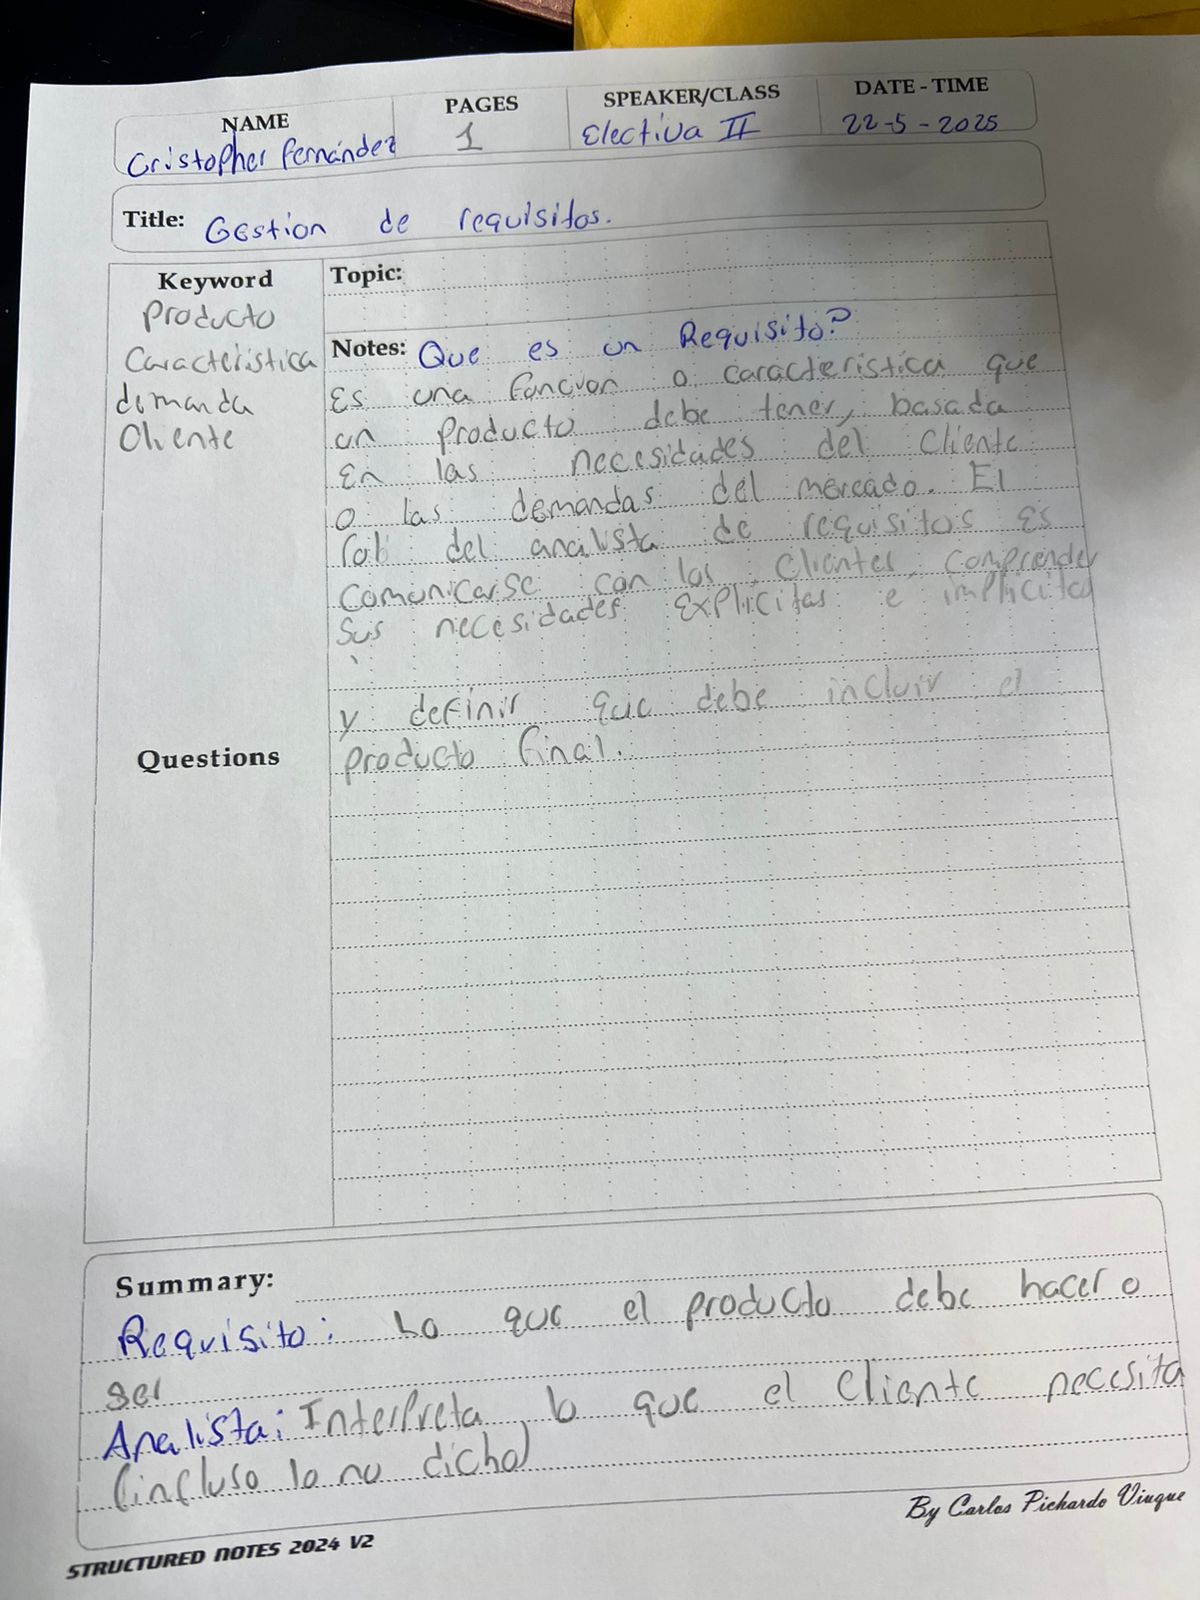 NAME PAGES SPEAKER/CLASS DATE - TIME
Cristopher Fernández 1 Electiva II 22-5-2025
Title: Gestion de requisitos.
Keyword
Producto
Caracteristica
demanda
Cliente
Topic:
Notes: Que es un Requisito?
Es una funcion o caracteristica que
un producto debe tener, basada
En las necesidades del cliente
o las demandas del mercado. El
rol del analista de requisitos es
comunicarse con los clientes, comprender
sus necesidades explicitas e implicitas
y definir que debe incluir el
producto final.
Questions
Summary:
Requisito: Lo que el producto debe hacer o
ser
Analista: Interpreta lo que el cliente necesita
(incluso lo no dicho)
By Carlos Pichardo Viuque
STRUCTURED NOTES 2024 V2